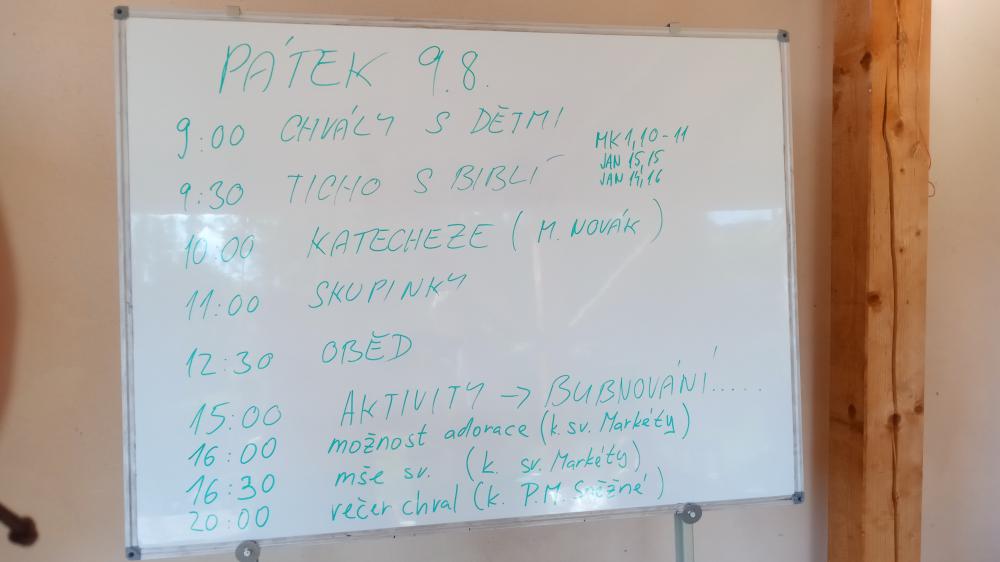 PÁTEK 9.8.
9:00 CHVÁLY S DĚTMI
9:30 TICHO S BIBLÍ
MK 1,10-11
JAN 15,15
JAN 14,16
10:00 KATECHEZE (M. NOVÁK)
11:00 SKUPINKY
12:30 OBĚD
15:00 AKTIVITY → BUBNOVÁNÍ.....
16:00 možnost adorace (k. sv. Markéty)
16:30 mše sv. (k. sv. Markéty)
20:00 večer chval (k. P.M. Sněžné)